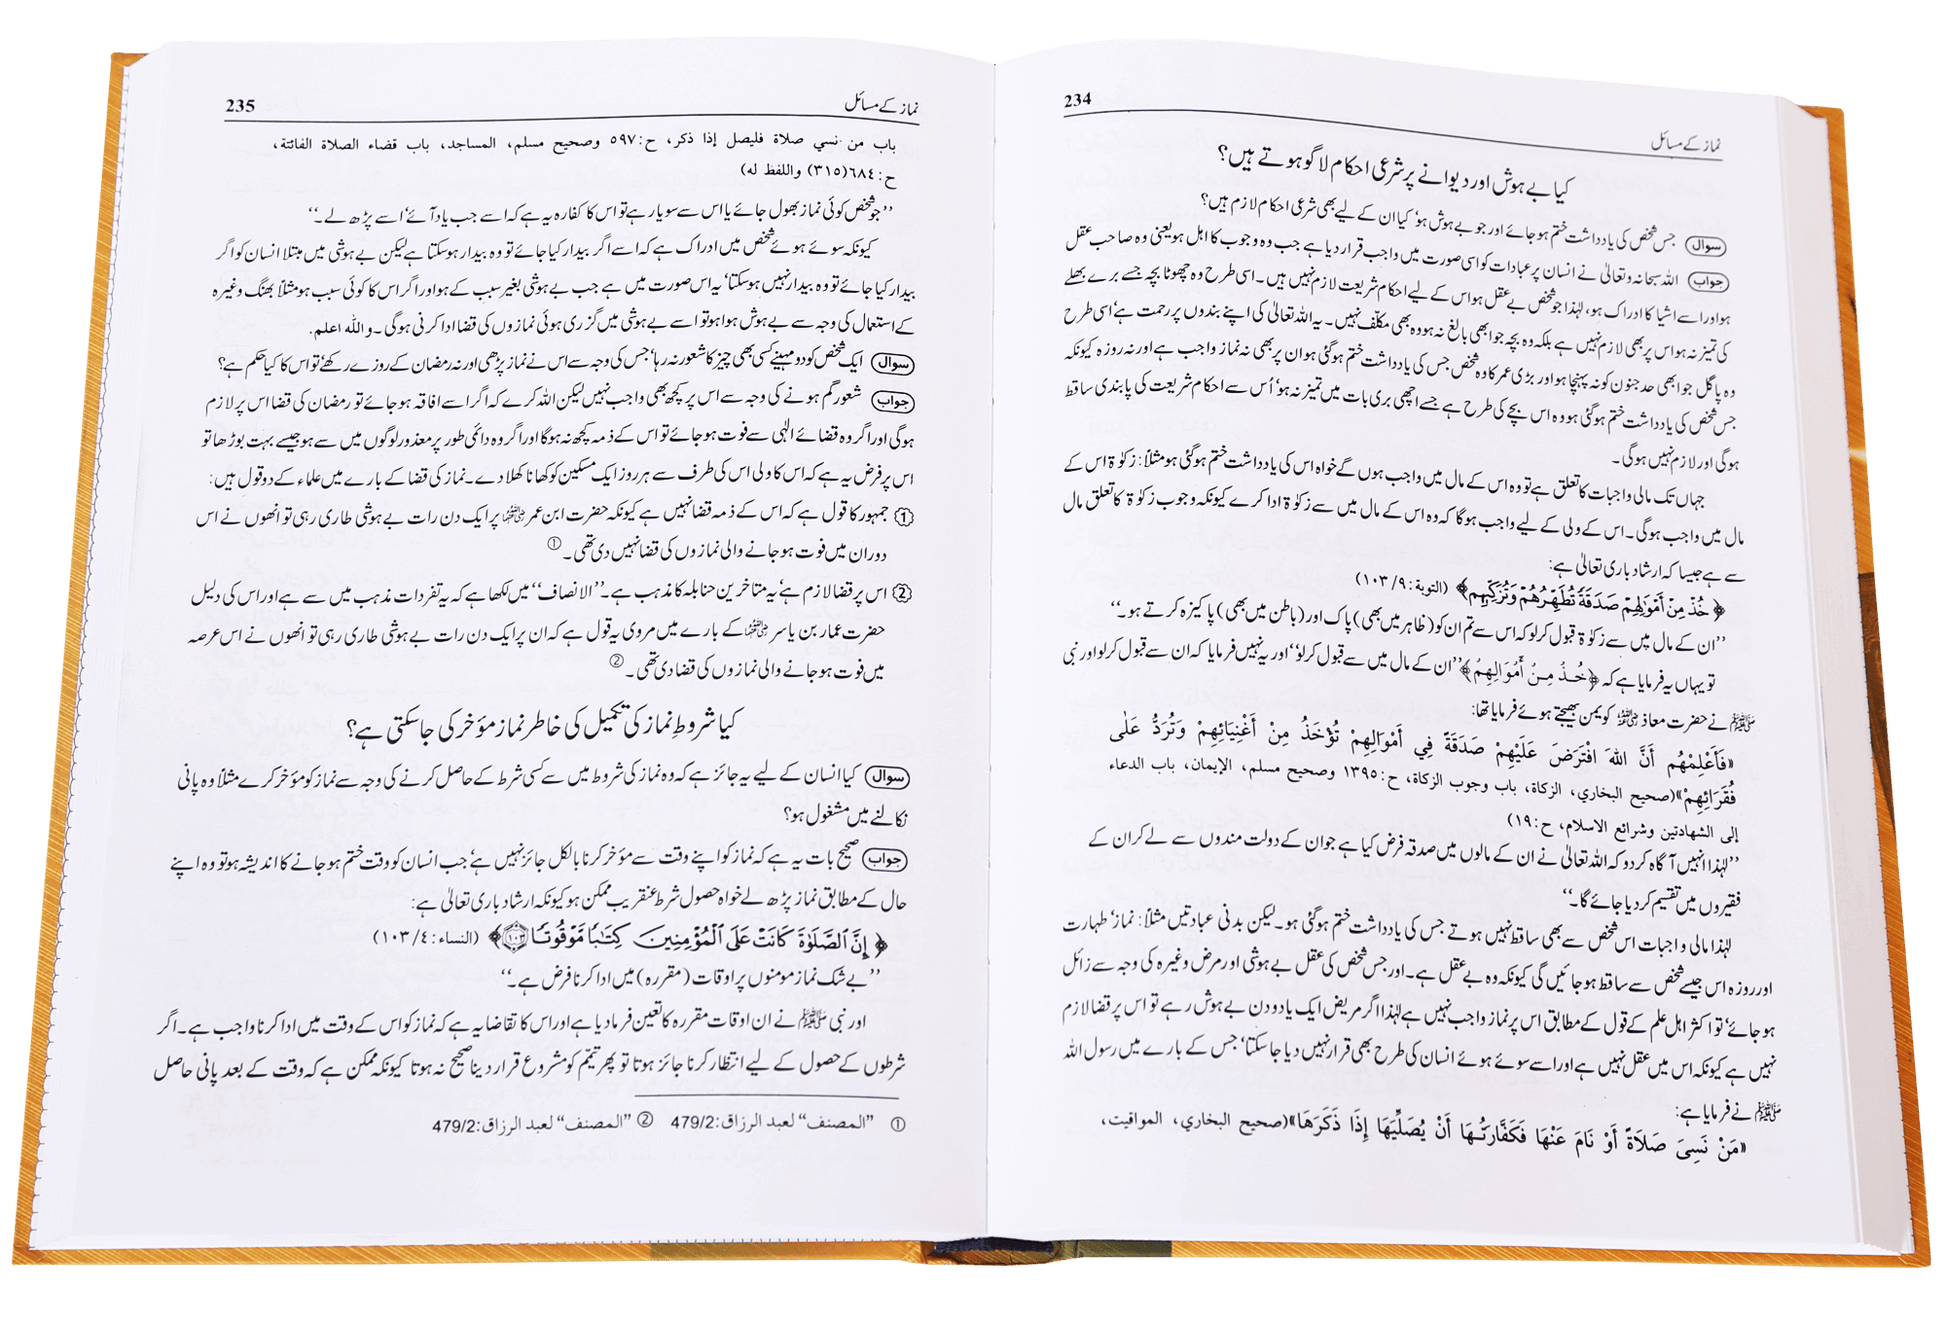 234
نماز کے مسائل
کیا بے ہوش اور دیوانے پر شرعی احکام لاگو ہوتے ہیں؟
سوال جس شخص کی یادداشت ختم ہو جائے اور جو بے ہوش ہو' کیا ان کے لیے بھی شرعی احکام لازم ہیں؟
جواب اللہ سبحانہ وتعالیٰ نے انسان پر عبادات کو اسی صورت میں واجب قرار دیا ہے جب وہ وجوب کا اہل ہو یعنی وہ صاحب عقل
ہو اور اسے اشیا کا ادراک ہو، لہٰذا جو شخص بے عقل ہو اس کے لیے احکام شریعت لازم نہیں ہیں۔ اسی طرح وہ چھوٹا بچہ جسے برے بھلے
کی تمیز نہ ہو اس پر بھی لازم نہیں ہے بلکہ وہ بچہ جو ابھی بالغ نہ ہو وہ بھی مکلّف نہیں۔ یہ اللہ تعالیٰ کی اپنے بندوں پر رحمت ہے' اسی طرح
وہ پاگل جو ابھی حد جنون کو نہ پہنچا ہو اور بڑی عمر کا وہ شخص جس کی یادداشت ختم ہو گئی ہو ان پر بھی نہ نماز واجب ہے اور نہ روزہ کیونکہ
جس شخص کی یادداشت ختم ہو گئی ہو وہ اس بچے کی طرح ہے جسے اچھی بری بات میں تمیز نہ ہو' اُس سے احکام شریعت کی پابندی ساقط
ہو گی اور لازم نہیں ہو گی۔
جہاں تک مالی واجبات کا تعلق ہے تو وہ اس کے مال میں واجب ہوں گے خواہ اس کی یادداشت ختم ہو گئی ہو مثلاً: زکوٰۃ اس کے
مال میں واجب ہو گی۔ اس کے ولی کے لیے واجب ہو گا کہ وہ اس کے مال میں سے زکوٰۃ ادا کرے کیونکہ وجوب زکوٰۃ کا تعلق مال
سے ہے جیسا کہ ارشاد باری تعالیٰ ہے:
﴿خُذْ مِنْ أَمْوَٰلِهِمْ صَدَقَةً تُطَهِّرُهُمْ وَتُزَكِّيهِم﴾ (التوبة: ٩/ ١٠٣)
''ان کے مال میں سے زکوٰۃ قبول کر لو کہ اس سے تم ان کو (ظاہر میں بھی) پاک اور (باطن میں بھی) پاکیزہ کرتے ہو۔''
تو یہاں یہ فرمایا ہے کہ ﴿خُذْ مِنْ أَمْوَالِهِمْ﴾ ''ان کے مال میں سے قبول کر لو'' اور یہ نہیں فرمایا کہ ان سے قبول کر لو اور نبی
ﷺ نے حضرت معاذ رضی اللہ عنہ کو یمن بھیجتے ہوئے فرمایا تھا:
«فَأَعْلِمْهُم أَنَّ اللهَ افْتَرَضَ عَلَيْهِمْ صَدَقَةً فِي أَمْوَالِهِمْ تُؤْخَذُ مِنْ أَغْنِيَائِهِمْ وَتُرَدُّ عَلَى
فُقَرَائِهِمْ»(صحيح البخاري، الزكاة، باب وجوب الزكاة، ح:١٣٩٥ وصحيح مسلم، الإيمان، باب الدعاء
إلى الشهادتين وشرائع الاسلام، ح:١٩)
''لہٰذا انہیں آگاہ کر دو کہ اللہ تعالیٰ نے ان کے مالوں میں صدقہ فرض کیا ہے جو ان کے دولت مندوں سے لے کر ان کے
فقیروں میں تقسیم کر دیا جائے گا۔''
لہٰذا مالی واجبات اس شخص سے بھی ساقط نہیں ہوتے جس کی یادداشت ختم ہو گئی ہو۔ لیکن بدنی عبادتیں مثلاً: نماز' طہارت
اور روزہ اس جیسے شخص سے ساقط ہو جائیں گی کیونکہ وہ بے عقل ہے۔ اور جس شخص کی عقل بے ہوشی اور مرض وغیرہ کی وجہ سے زائل
ہو جائے' تو اکثر اہل علم کے قول کے مطابق اس پر نماز واجب نہیں ہے لہٰذا اگر مریض ایک یا دو دن بے ہوش رہے تو اس پر قضا لازم
نہیں ہے کیونکہ اس میں عقل نہیں ہے اور اسے سوئے ہوئے انسان کی طرح بھی قرار نہیں دیا جا سکتا' جس کے بارے میں رسول اللہ
ﷺ نے فرمایا ہے:
«مَنْ نَسِيَ صَلاَةً أَوْ نَامَ عَنْهَا فَكَفَّارَتُهَا أَنْ يُصَلِّيَهَا إِذَا ذَكَرَهَا»(صحيح البخاري، المواقيت،
نماز کے مسائل
235
باب من نسي صلاة فليصل إذا ذكر، ح:٥٩٧ وصحيح مسلم، المساجد، باب قضاء الصلاة الفائتة،
ح:٦٨٤(٣١٥) واللفظ له)
''جو شخص کوئی نماز بھول جائے یا اس سے سویا رہے تو اس کا کفارہ یہ ہے کہ اسے جب یاد آئے' اسے پڑھ لے۔''
کیونکہ سوئے ہوئے شخص میں ادراک ہے کہ اسے اگر بیدار کیا جائے تو وہ بیدار ہو سکتا ہے لیکن بے ہوشی میں مبتلا انسان کو اگر
بیدار کیا جائے تو وہ بیدار نہیں ہو سکتا' یہ اس صورت میں ہے جب بے ہوشی بغیر سبب کے ہو اور اگر اس کا کوئی سبب ہو مثلاً بھنگ وغیرہ
کے استعمال کی وجہ سے بے ہوش ہوا ہو تو اسے بے ہوشی میں گزری ہوئی نمازوں کی قضا ادا کرنی ہو گی۔ والله اعلم.
سوال ایک شخص کو دو مہینے کسی بھی چیز کا شعور نہ رہا' جس کی وجہ سے اس نے نماز پڑھی اور نہ رمضان کے روزے رکھے' تو اس کا کیا حکم ہے؟
جواب شعور گم ہونے کی وجہ سے اس پر کچھ بھی واجب نہیں لیکن اللہ کرے کہ اگر اسے افاقہ ہو جائے تو رمضان کی قضا اس پر لازم
ہو گی اور اگر وہ قضائے الٰہی سے فوت ہو جائے تو اس کے ذمہ کچھ نہ ہو گا اور اگر وہ دائمی طور پر معذور لوگوں میں سے ہو جیسے بہت بوڑھا تو
اس پر فرض یہ ہے کہ اس کا ولی اس کی طرف سے ہر روز ایک مسکین کو کھانا کھلا دے۔ نماز کی قضا کے بارے میں علماء کے دو قول ہیں:
① جمہور کا قول ہے کہ اس کے ذمہ قضا نہیں ہے کیونکہ حضرت ابن عمر رضی اللہ عنہما پر ایک دن رات بے ہوشی طاری رہی تو انھوں نے اس
دوران میں فوت ہو جانے والی نمازوں کی قضا نہیں دی تھی۔①
② اس پر قضا لازم ہے' یہ متاخرین حنابلہ کا مذہب ہے۔ ''الانصاف'' میں لکھا ہے کہ یہ تفردات مذہب میں سے ہے اور اس کی دلیل
حضرت عمار بن یاسر رضی اللہ عنہما کے بارے میں مروی یہ قول ہے کہ ان پر ایک دن رات بے ہوشی طاری رہی تو انھوں نے اس عرصہ
میں فوت ہو جانے والی نمازوں کی قضا دی تھی۔②
کیا شروطِ نماز کی تکمیل کی خاطر نماز مؤخر کی جا سکتی ہے؟
سوال کیا انسان کے لیے یہ جائز ہے کہ وہ نماز کی شروط میں سے کسی شرط کے حاصل کرنے کی وجہ سے نماز کو مؤخر کرے مثلاً وہ پانی
نکالنے میں مشغول ہو؟
جواب صحیح بات یہ ہے کہ نماز کو اپنے وقت سے مؤخر کرنا بالکل جائز نہیں ہے' جب انسان کو وقت ختم ہو جانے کا اندیشہ ہو تو وہ اپنے
حال کے مطابق نماز پڑھ لے خواہ حصول شرط عنقریب ممکن ہو کیونکہ ارشاد باری تعالیٰ ہے:
﴿إِنَّ ٱلصَّلَوٰةَ كَانَتْ عَلَى ٱلْمُؤْمِنِينَ كِتَٰبًا مَّوْقُوتًا ۝١٠٣﴾ (النساء: ٤/ ١٠٣)
''بے شک نماز مومنوں پر اوقات (مقررہ) میں ادا کرنا فرض ہے۔''
اور نبی ﷺ نے ان اوقات مقررہ کا تعین فرما دیا ہے اور اس کا تقاضا یہ ہے کہ نماز کو اس کے وقت میں ادا کرنا واجب ہے۔ اگر
شرطوں کے حصول کے لیے انتظار کرنا جائز ہوتا تو پھر تیمّم کو مشروع قرار دینا صحیح نہ ہوتا کیونکہ ممکن ہے کہ وقت کے بعد پانی حاصل
① "المصنف" لعبد الرزاق:479/2 ② "المصنف" لعبد الرزاق:479/2